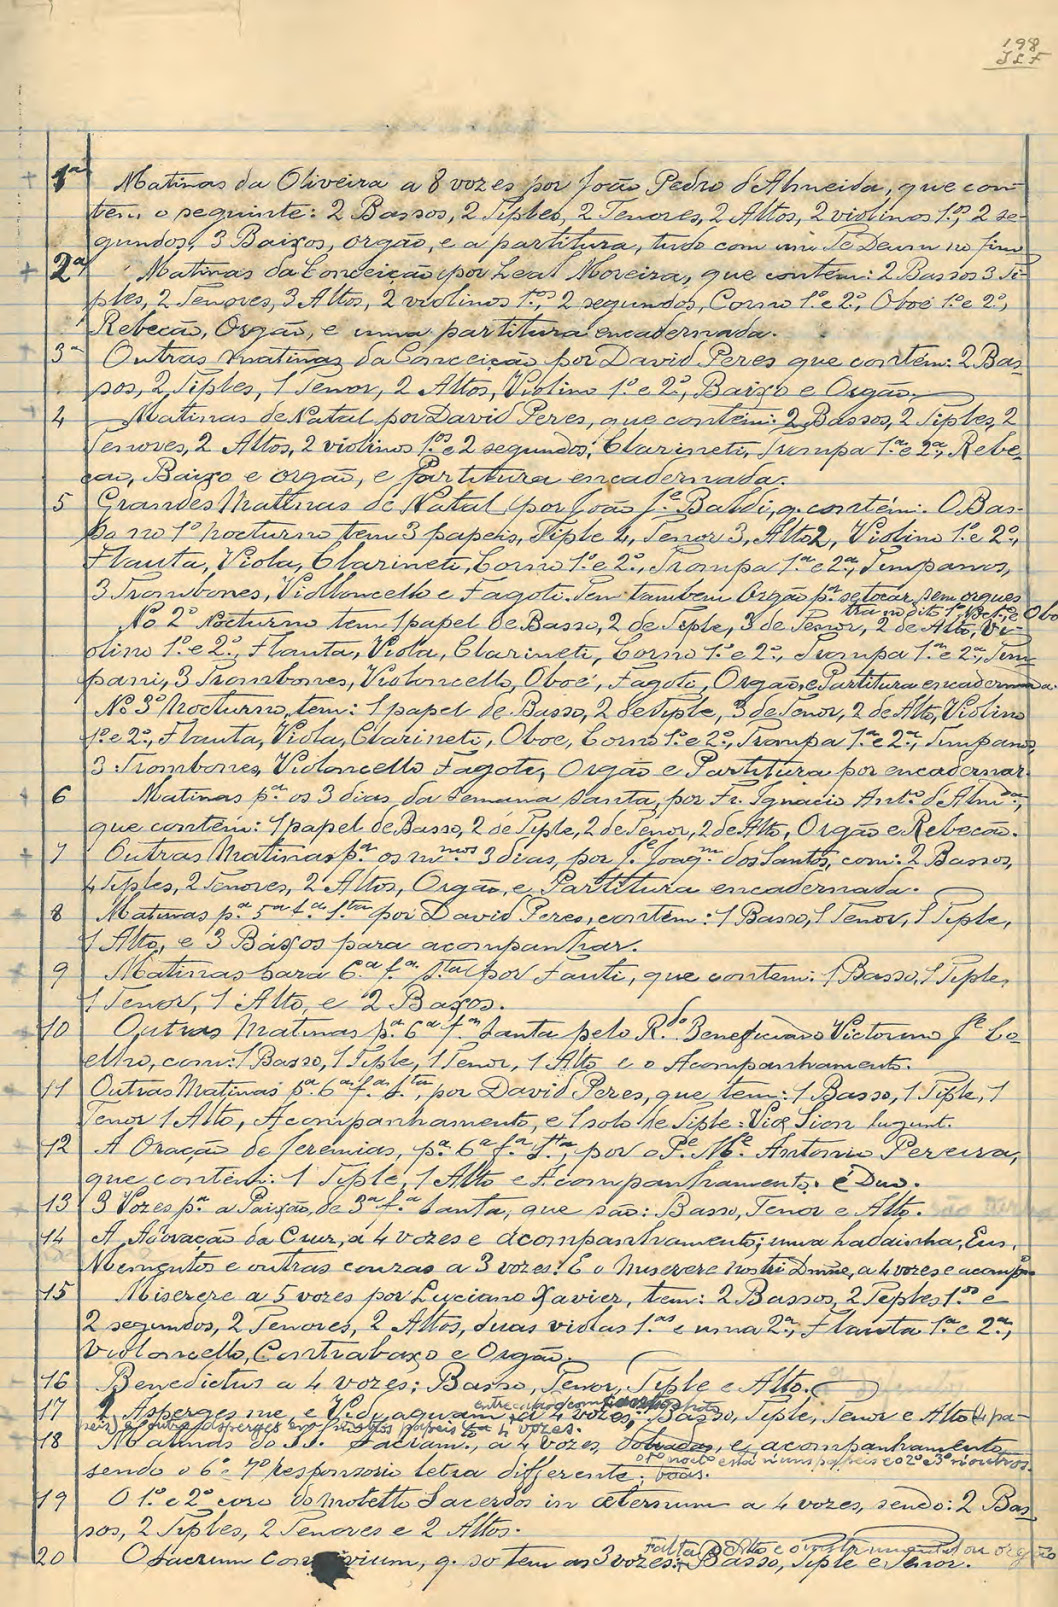 198
1ª Matinas da Oliveira a 8 vozes por João Pedro d'Almeida, que con-
tem o seguinte: 2 Bassos, 2 Tiples, 2 Tenores, 2 Altos, 2 violinos 1.ºs, 2 se-
gundos, 3 Baixos, orgão, e a partitura, tudo com um Te Deum no fim
2ª Matinas da Conceição por Leal Moreira, que contém: 2 Bassos 3 Ti-
ples, 2 Tenores, 3 Altos, 2 violinos 1.ºs, 2 segundos, Corno 1.º e 2.º, Oboé 1.º e 2.º,
Rebecão, Orgão, e uma partitura encadernada.
3ª Outras Matinas da Conceição por David Peres que contém: 2 Bas-
sos, 2 Tiples, 1 Tenor, 2 Altos, Violino 1.º e 2.º, Baixo e Orgão.
4 Matinas de Natal por David Peres, que contém: 2 Bassos, 2 Tiples, 2
Tenores, 2 Altos, 2 violinos 1.ºs e 2 segundos, Clarineti, Trompa 1.ª e 2.ª, Rebe-
cão, Baixo e orgão, e Partitura encadernada.
5 Grandes Matinas de Natal por João J.é Baldi, q. contém: O Bas-
so no 1º nocturno tem 3 papeis, Tiple 4, Tenor 3, Alto 2, Violino 1.º e 2.º,
Flauta, Viola, Clarineti, Corno 1.º e 2.º, Trompa 1.ª e 2.ª, Timpanos,
3 Trombones, Violloncello e Fagoti. Tem tambem Orgão p.ª se tocar sem orques
tra no dito 1.º Not.º, e Oboé
No 2º Nocturno tem 1 papel de Basso, 2 de Tiple, 3 de Tenor, 2 de Alto, Vi-
olino 1.º e 2.º, Flauta, Viola, Clarineti, Corno 1.º e 2.º, Trompa 1.ª e 2.ª, Tim
pani, 3 Trombones, Violoncello, Oboé, Fagoti, Orgão, e Partitura encadernada.
No 3º Nocturno, tem: 1 papel de Basso, 2 de Tiple, 3 de Tenor, 2 de Alto, Violino
1.º e 2.º, Flauta, Viola, Clarineti, Oboe, Corno 1.º e 2.º, Trompa 1.ª e 2.ª, Timpano,
3 Trombones, Violoncello Fagoti, Orgão e Partitura por encadernar
6 Matinas p.ª os 3 dias da Semana Santa, por Fr. Ignacio Ant.º d'Alm.da,
que contém: 1 papel de Basso, 2 de Tiple, 2 de Tenor, 2 de Alto, Orgão e Rebecão.
7 Outras Matinas p.ª os m.mos 3 dias, por J.é Joaq.m dos Santos, com: 2 Bassos,
4 Tiples, 2 Tenores, 2 Altos, Orgão, e Partitura encadernada.
8 Matinas p.ª 5ª f.ª S.ta por David Peres, contém: 1 Basso, 1 Tenor, 1 Tiple,
1 Alto, e 3 Báixos para acompanhar.
9 Matinas para 6.ª f.ª S.ta por Fauti, que contem: 1 Basso, 1 Tiple,
1 Tenor, 1 Alto, e 2 Baxos.
10 Outras Matinas p.ª 6ª f.ª Santa pelo R.do Beneficiado Victorino J.é Co-
elho, com: 1 Basso, 1 Tiple, 1 Tenor, 1 Alto e o Acompanhamento.
11 Outras Matinas p.ª 6ª f.ª S.ta, por David Peres, que tem: 1 Basso, 1 Tiple, 1
Tenor 1 Alto, Acompanhamento, e 1 solo de Tiple: Viæ Sion lugunt.
12 A Oração de Jeremias, p.ª 6ª f.ª S.ta, por o P.e M.e Antonio Pereira,
que contém: 1 Tiple, 1 Alto e Acompanhamento. é Duo.
13 3 Vozes p.ª a Paixão, de 3ª f.ª Santa, que são: Basso, Tenor e Alto.
14 A Adoração da Cruz, a 4 vozes e acompanhamento; uma Ladainha, Eus,
Mementos e outras couzas a 3 vozes. E o Miserere nostri Dmne, a 4 vozes e acomp.to
15 Miserere a 5 vozes por Luciano Xavier, tem: 2 Bassos, 2 Teples 1.ºs e
2 segundos, 2 Tenores, 2 Altos, duas violas 1.as e uma 2.ª, Flauta 1.ª e 2.ª,
Violoncello, Contrabaxo e Orgão.
16 Benedictus a 4 vozes; Basso, Tenor, Tiple e Alto.
17 2 Asperges me e Vidi aquam, a 4 vozes; Basso, Tiple, Tenor e Alto (4 pa-
peis) e outro asperges em papeis a 4 vozes.
18 Matinas do SS. Sacram., a 4 vozes dobradas, e acompanhamento
o 1º noct.º está n'uns papeis e o 2º e 3º n'outros.
sendo o 6º e 7º responsorio letra differente; boas.
19 O 1.º e 2º coro do Motetto Sacerdos in æternum a 4 vozes, sendo: 2 Bas-
sos, 2 Tiples, 2 Tenores e 2 Altos.
Falta o Alto e o instrumental ou orgão
20 O Sacrum convivium, q. so tem as 3 vozes: Basso, Tiple e Tenor.